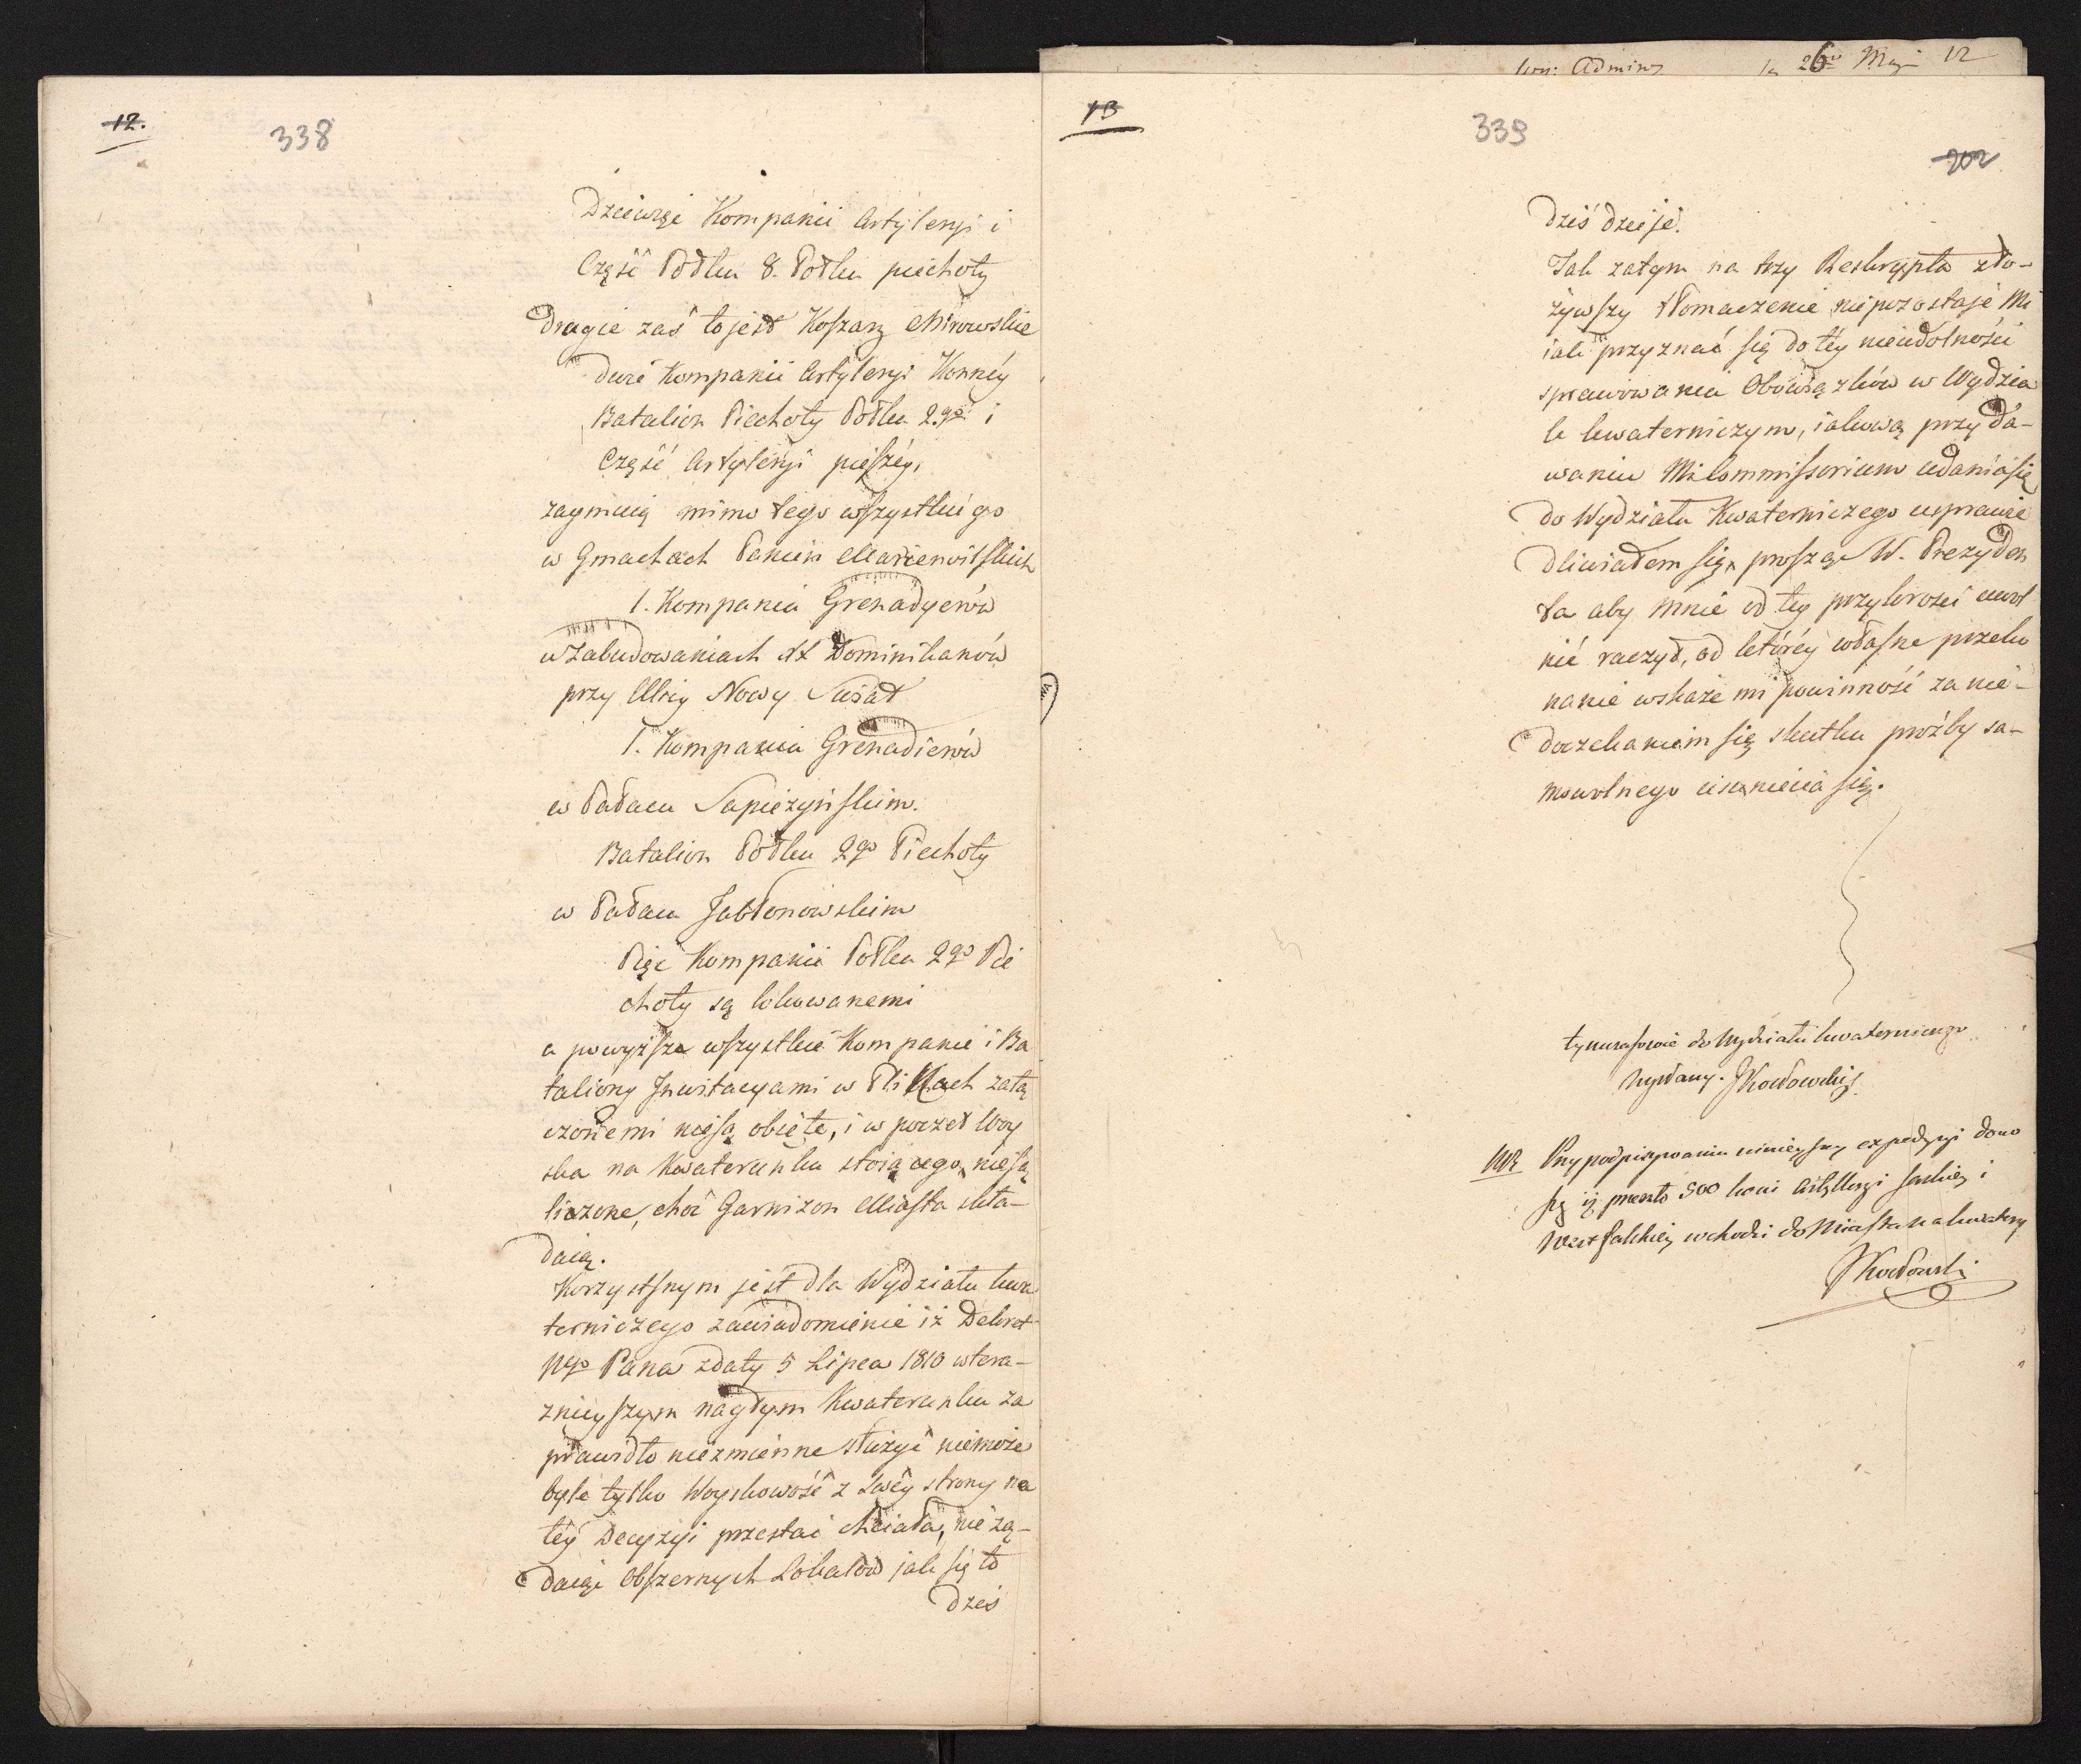 12.
338
Dziewięć Kompanii Artylerji i
Część Półku 8. Półku piechoty
drugie zaś to jest Koszary Mirowskie
dwie Kompanii Artylerji Konnéy
Batalion Piechoty Półku 2.go i
Część Artylerji pieszéy,
zaymuią mimo tego wszystkiego
w Gmachach Panien Marienwilskich
1. Kompania Grenadyerów
w Zabudowaniach XX Dominikanów
przy Ulicy Nowy Swiat
1. Kompania Grenadierów
w Pałacu Sapieżyńskim.
Batalion Półku 2go Piechoty
w Pałacu Jabłonowskim
Pięć Kompanii Półku 2go Pie
choty są lokowanemi
a powyższe wszystkie Kompanie i Ba
taliony Inwitacyami w Plikach załą
czonemi niesą obięte, i w poczet Woy
ska na Kwaterunku stoiącego niesą
liczone, choć Garnizon Miasta skła-
daią.
Korzystnym jest dla Wydziału kwa
terniczego zawiadomienie iż Dekret
Ngo Pana z daty 5 Lipca 1810 w tera-
znieyszym nagłym Kwaterunku za
prawidło niezmienne służyć niemoże
byle tylko Woyskowość z swéy strony na
téy Decyzyi przestać chciała, nie żą-
daiąc Obszernych Lokalów jak się to
dziś
Admin
26 Maj 12
13
339
202
dziś dzieje.
Jak zatym na trzy Reskrypta zło-
żywszy tłomaczenie niepozostaje Mi
iak przyznać się do téy nieudolności
sprawowania Obowiązków w Wydzia
le kwaterniczym, iakową przy da-
waniu Mi Commissorium udania się
do Wydziału Kwaterniczego usprawie
dliwiałem się, prosząc W. Prezyden
ta aby mnie od tey przykrości uwol
nić raczył, od którey własne przeko
nanie wskaże mi powinność za nie-
doczekaniem się skutku prośby sa-
mowolnego usunięcia się.
tymczasowie do Wydziału kwaterniczego
wysłany. JKochowski
NB. Przy podpisywaniu ninieyszey expedycyi dono
szę iż przeszło 500 koni Artylleryi saskiey i
Westfalskiey wchodzi do Miasta na kwatery
JKochowski